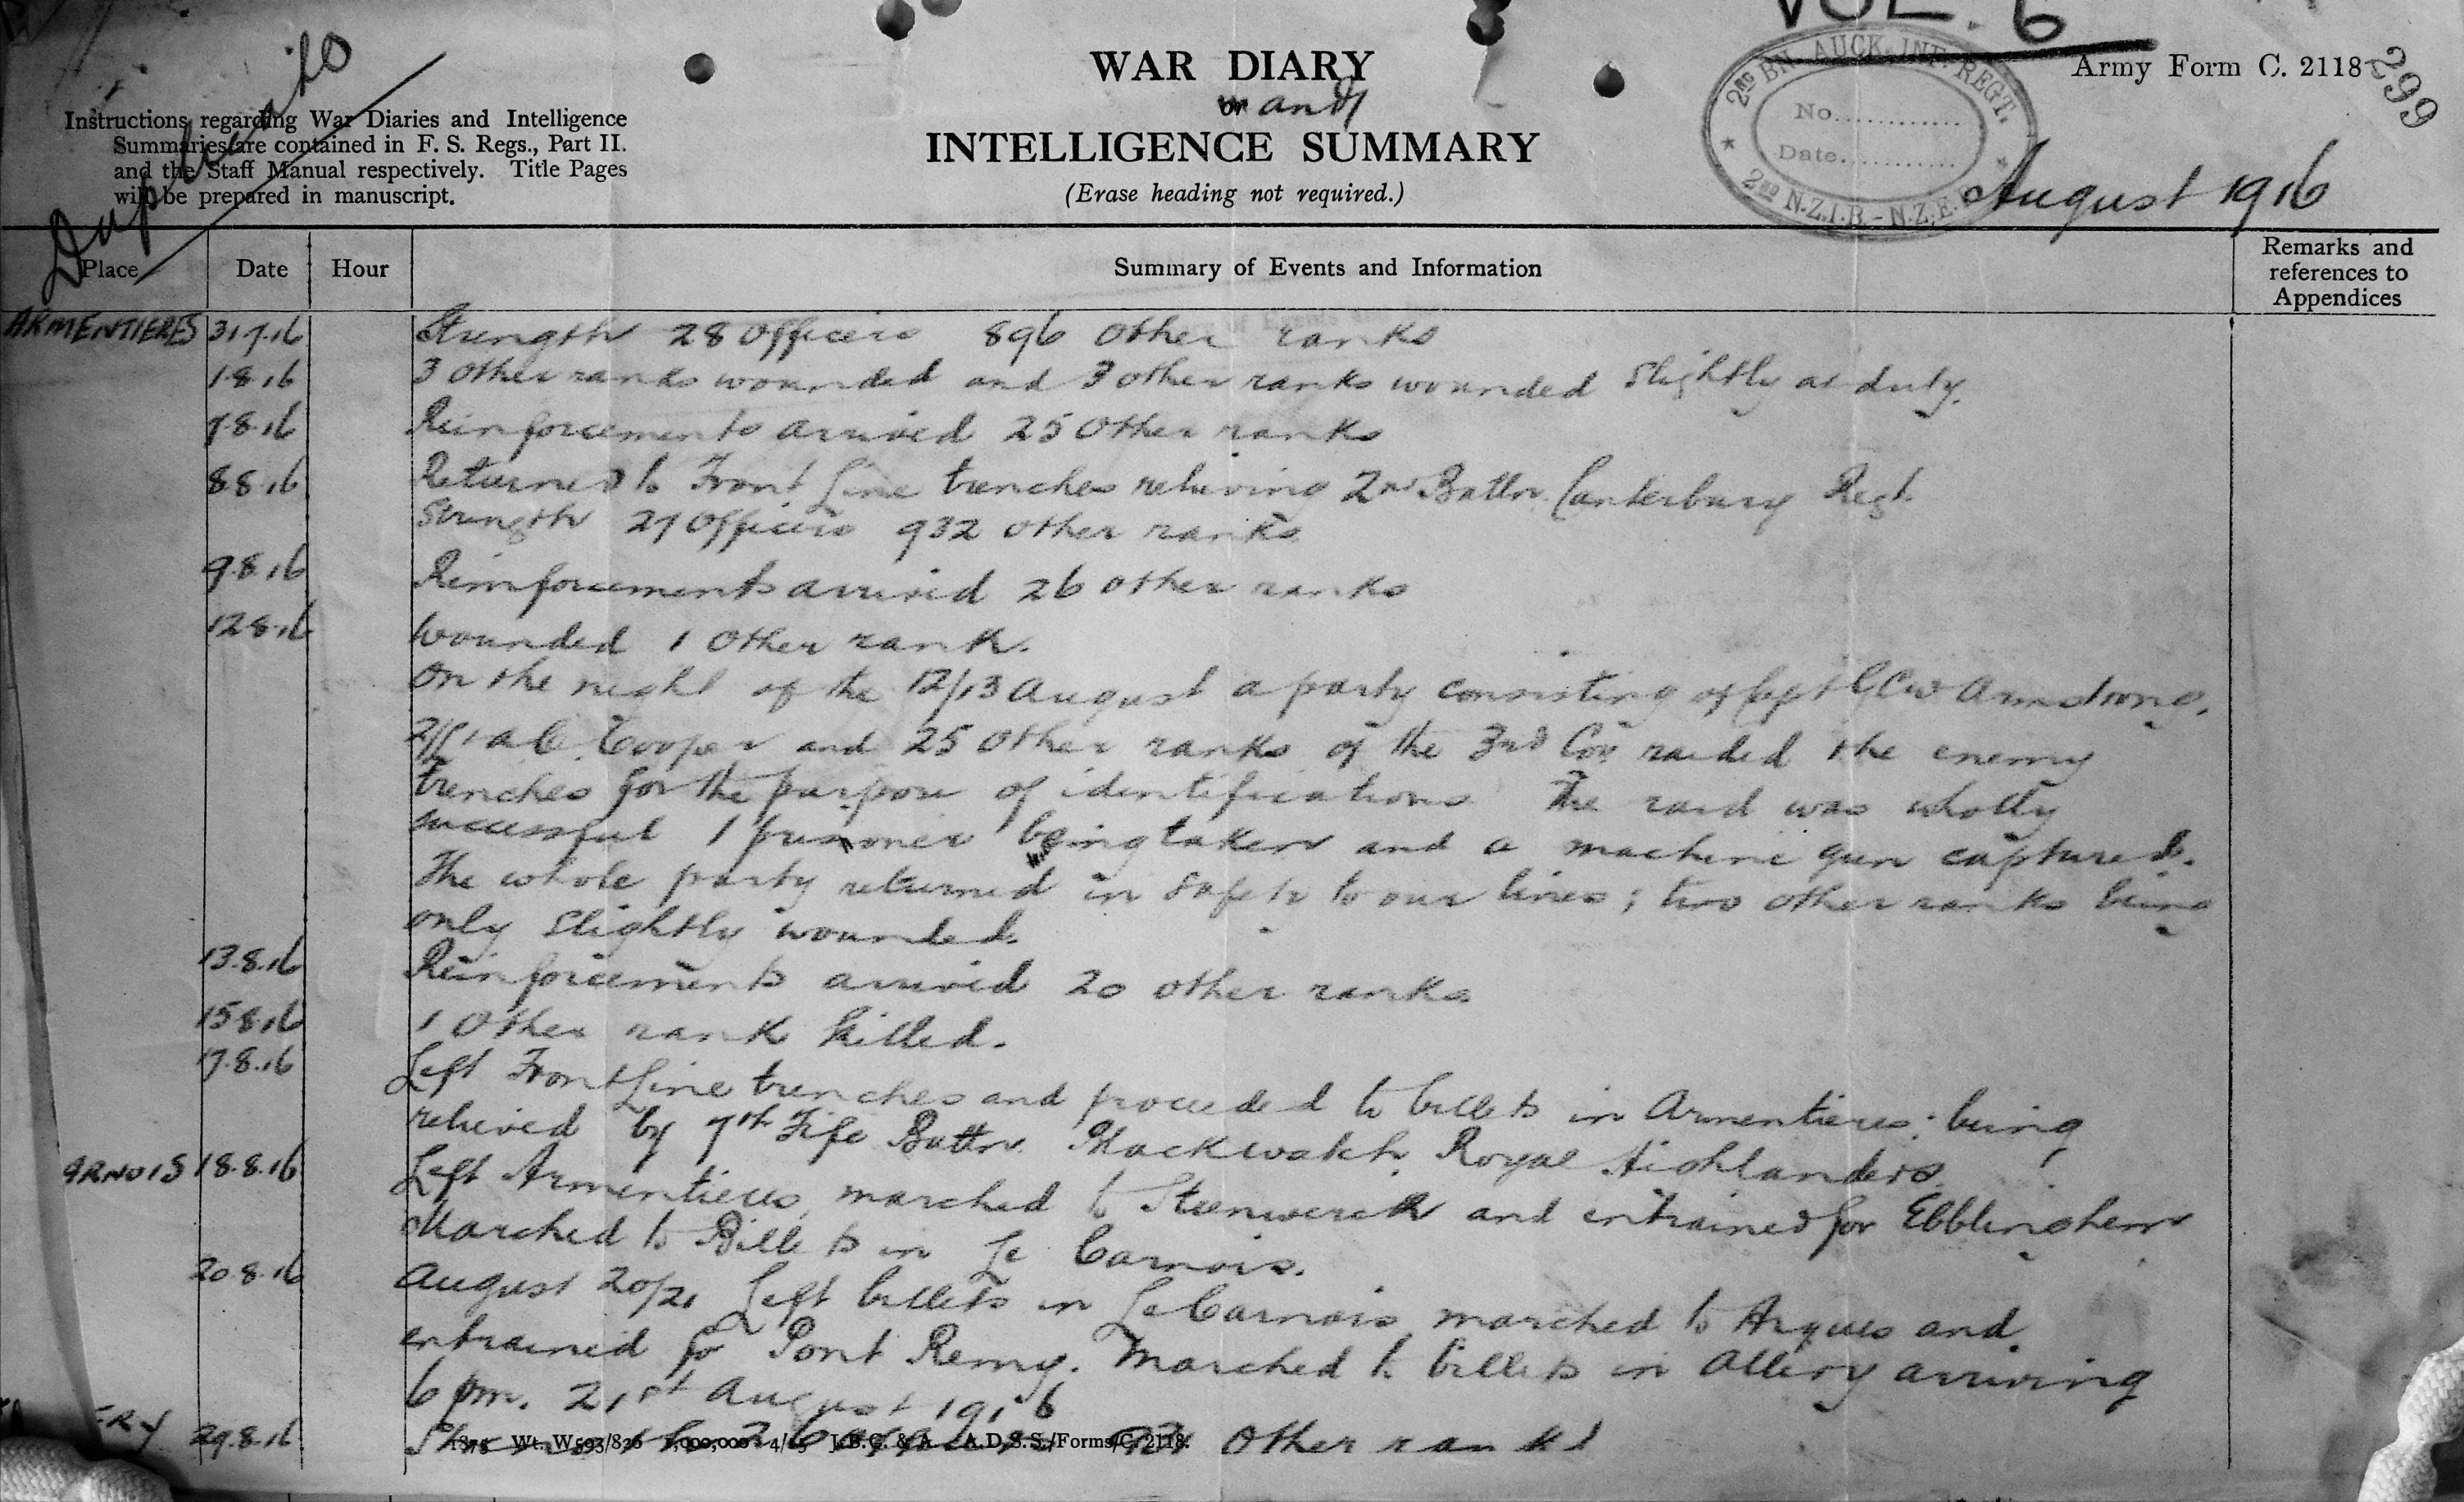 VOL. 6
Duplicate
Instructions regarding War Diaries and Intelligence
Summaries are contained in F. S. Regs., Part II.
and the Staff Manual respectively. Title Pages
will be prepared in manuscript.
WAR DIARY
or and
INTELLIGENCE SUMMARY
(Erase heading not required.)
2ND BN. AUCK. INF. REGT.
No............
Date............
2ND N.Z.I.B. - N.Z.E.F.
Army Form C. 2118
299
August 1916
Place Date Hour Summary of Events and Information Remarks and references to Appendices
ARMENTIERES 31.7.16 Strength 28 Officers 896 Other ranks
1.8.16 3 other ranks wounded and 3 other ranks wounded slightly at duty.
7.8.16 Reinforcements arrived 25 Other ranks
8.8.16 Returned to Front Line trenches relieving 2nd Battn. Canterbury Regt.
Strength 27 Officers 932 other ranks
9.8.16 Reinforcements arrived 26 other ranks
12.8.16 Wounded 1 Other rank.
On the night of the 12/13 August a party consisting of Capt Armstrong,
2/Lt Cooper and 25 Other ranks of the 3rd Coy raided the enemy
trenches for the purpose of identifications The raid was wholly
successful 1 prisoner being taken and a machine gun captured.
The whole party returned in safety to our lines; two other ranks being
only slightly wounded.
13.8.16 Reinforcements arrived 20 other ranks
15.8.16 1 Other rank killed.
17.8.16 Left Front Line trenches and proceeded to billets in Armentieres; being
relieved by 7th Fife Battn. Black watch Royal Highlanders.
ARNOIS 18.8.16 Left Armentieres, marched to Steenwerck and entrained for Ebblinghem
Marched to Billets in Le Carnois.
20.8.16 August 20/21 Left billets in Le Carnois marched to Arques and
entrained for Pont Remy. Marched to billets in Allery arriving
6 pm. 21st August 1916
ERY 29.8.16 Strength 26 Officers Other ranks
1875 Wt. W593/826 1,000,000 4/15 J.B.C. & A. A.D.S.S./Forms/C. 2118.